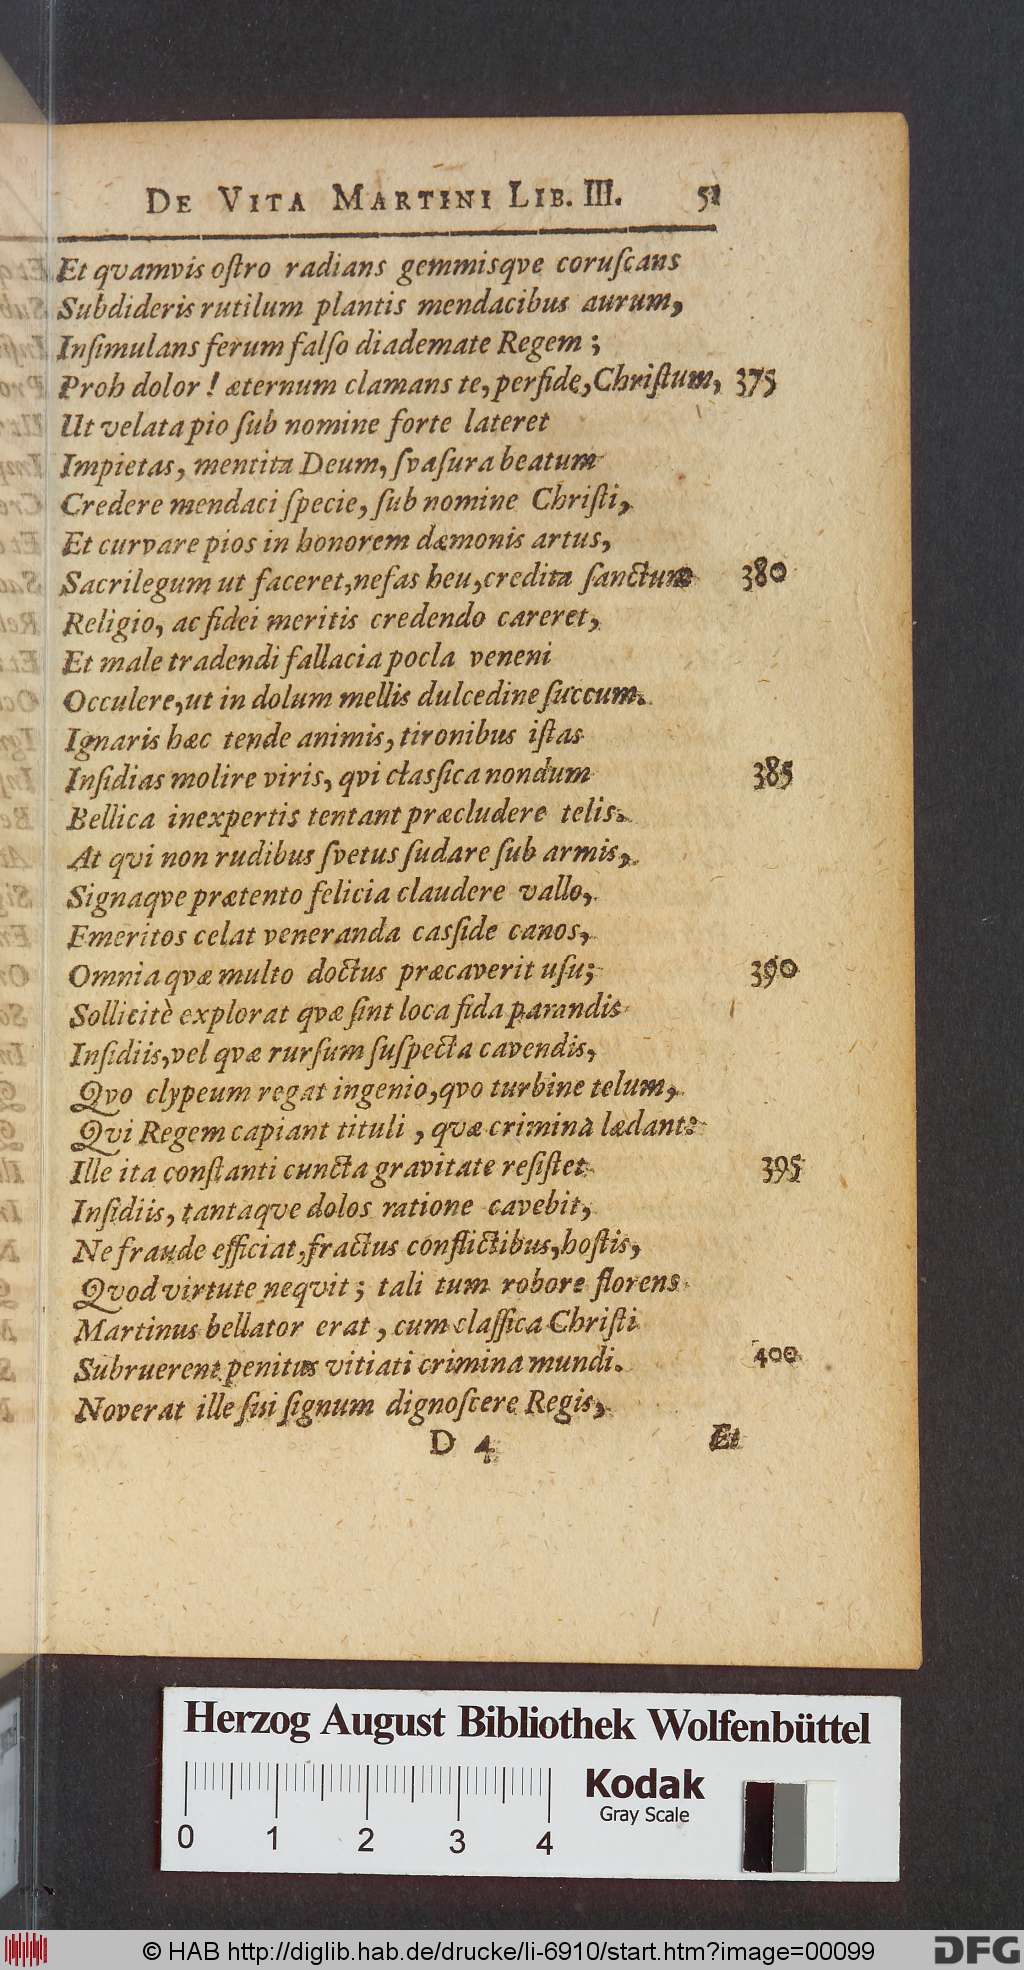 DE VITA MARTINI LIB. III. 51
Et qvamvis oſtro radians gemmisqve coruſcans
Subdideris rutilum plantis mendacibus aurum,
Inſimulans ferum falſo diademate Regem;
Proh dolor! æternum clamans te, perfide, Chriſtum, 375
Ut velata pio ſub nomine forte lateret
Impietas, mentita Deum, ſvaſura beatum
Credere mendaci ſpecie, ſub nomine Chriſti,
Et curvare pios in honorem dæmonis artus,
Sacrilegum ut faceret, nefas heu, credita ſanctum 380
Religio, ac fidei meritis credendo careret,
Et male tradendi fallacia pocla veneni
Occulere, ut in dolum mellis dulcedine ſuccum.
Ignaris hæc tende animis, tironibus iſtas
Inſidias molire viris, qvi claſſica nondum 385
Bellica inexpertis tentant præcludere telis.
At qvi non rudibus ſvetus ſudare ſub armis,
Signaqve prætento felicia claudere vallo,
Emeritos celat veneranda casſide canos,
Omnia qvæ multo doctus præcaverit uſu; 390
Sollicitè explorat qvæ ſint loca fida parandis
Inſidiis, vel qvæ rurſum ſuſpecta cavendis,
Qvo clypeum regat ingenio, qvo turbine telum,
Qvi Regem capiant tituli, qvæ crimina lædant:
Ille ita conſtanti cuncta gravitate reſiſtet 395
Inſidiis, tantaqve dolos ratione cavebit,
Ne fraude efficiat, fractus conflictibus, hoſtis,
Qvod virtute neqvit; tali tum robore florens
Martinus bellator erat, cum claſſica Chriſti
Subruerent penitus vitiati crimina mundi. 400
Noverat ille ſui ſignum dignoſcere Regis,
D 4 Et
Herzog August Bibliothek Wolfenbüttel
Kodak
Gray Scale
0 1 2 3 4
© HAB http://diglib.hab.de/drucke/li-6910/start.htm?image=00099
DFG